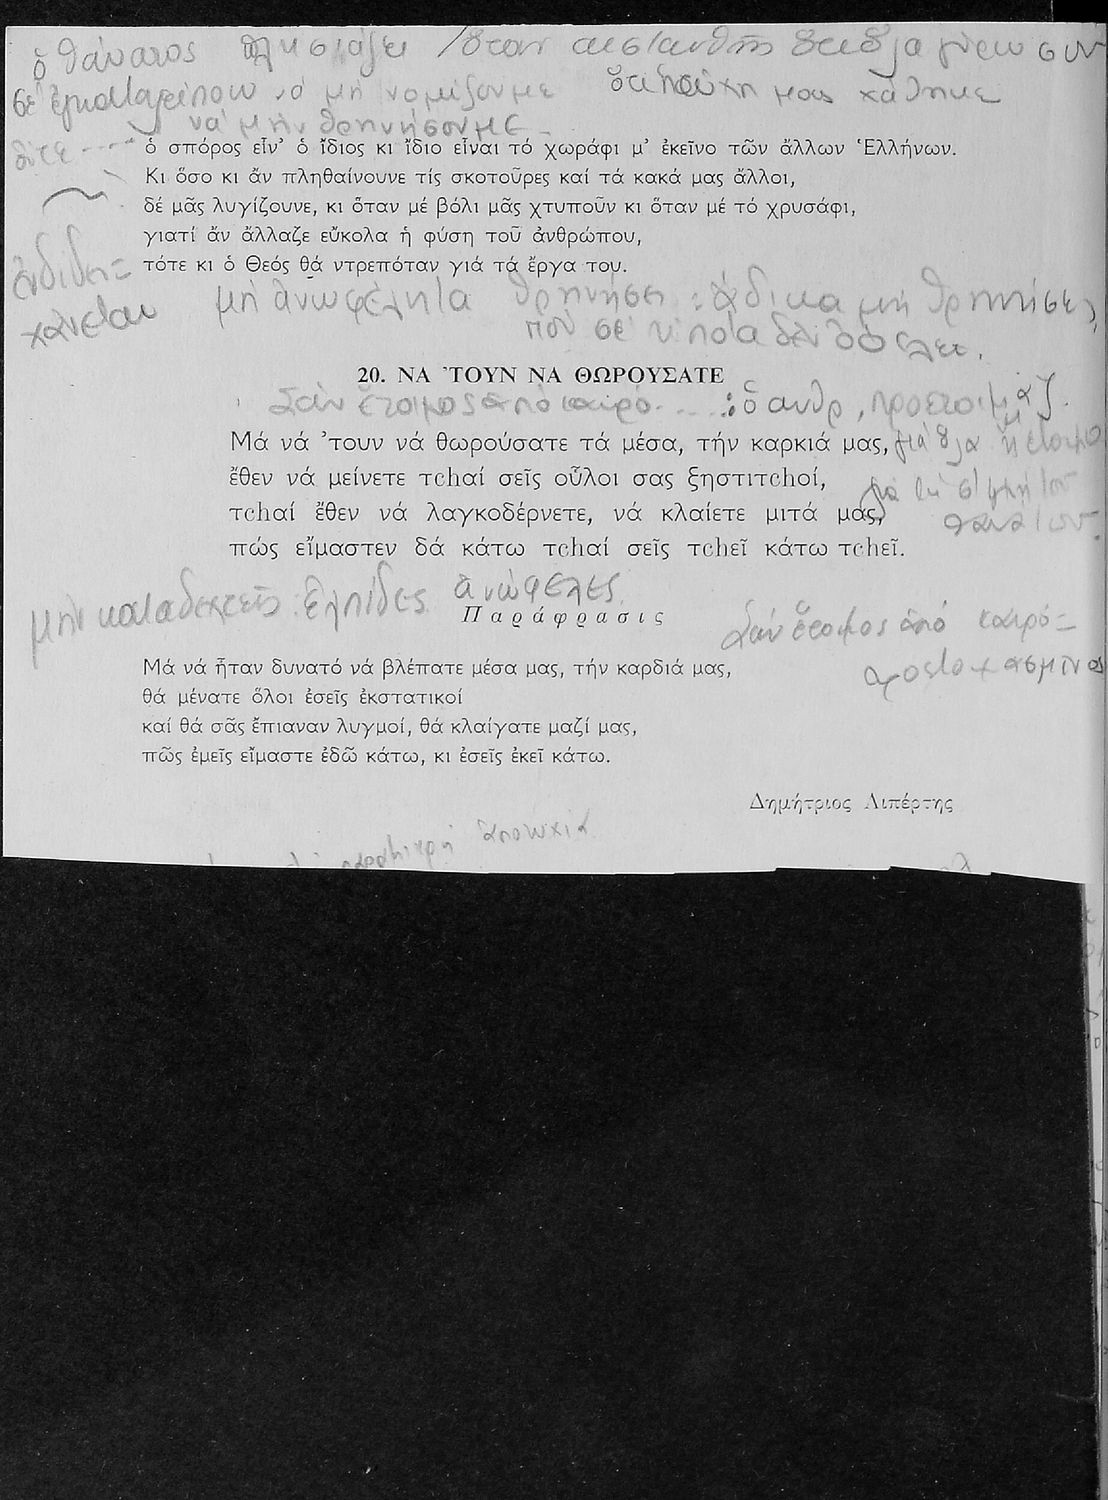 ὁ θάνατος πλησιάζει / ὅταν αισθανθῆς ὅτι ὅλα γύρω σου
σέ ἐγκαταλείπουν νά μή νομίζουμε ὅτι ἡ τύχη μας χάθηκε
νά μήν θρηνήσουμε -
ὁ σπόρος εἶν' ὁ ἴδιος κι ἴδιο εἶναι τό χωράφι μ' ἐκεῖνο τῶν ἄλλων Ἑλλήνων.
Κι ὅσο κι ἄν πληθαίνουνε τίς σκοτοῦρες καί τά κακά μας ἄλλοι,
δέ μᾶς λυγίζουνε, κι ὅταν μέ βόλι μᾶς χτυποῦν κι ὅταν μέ τό χρυσάφι,
γιατί ἄν ἄλλαζε εὔκολα ἡ φύση τοῦ ἀνθρώπου,
τότε κι ὁ Θεός θά ντρεπόταν γιά τά ἔργα του.
ἐνδίδει =
χάνεται
μή ἀνωφέλητα θρηνήσῃ : ἄδικα μή θρηνήσεις
πού σέ τίποτα δέν ὠφελεῖ.
20. ΝΑ 'ΤΟΥΝ ΝΑ ΘΩΡΟΥΣΑΤΕ
Σάν ἕτοιμος ἀπό καιρό.... : ὅ ανθρ, προετοιμάζ.
Μά νά 'τουν νά θωρούσατε τά μέσα, τήν καρκιά μας, γιά ὅλα
ἔθεν νά μείνετε τchαί σεῖς οὗλοι σας ξηστιτchοί,
γιά τή στιγμή τοῦ
τchαί ἔθεν νά λαγκοδέρνετε, νά κλαίετε μιτά μας,
θανάτου.
πώς εἴμαστεν δά κάτω τchαί σεῖς τchεῖ κάτω τchεῖ.
μήν καταδεχτεῖς : ἐλπίδες ἀνώφελες
Παράφρασις
Σάν ἕτοιμος ἀπό καιρό =
προετοιμασμένος
Μά νά ἦταν δυνατό νά βλέπατε μέσα μας, τήν καρδιά μας,
θά μένατε ὅλοι ἐσεῖς ἐκστατικοί
καί θά σᾶς ἔπιαναν λυγμοί, θά κλαίγατε μαζί μας,
πῶς ἐμεῖς εἴμαστε ἐδῶ κάτω, κι ἐσεῖς ἐκεῖ κάτω.
Δημήτριος Λιπέρτης